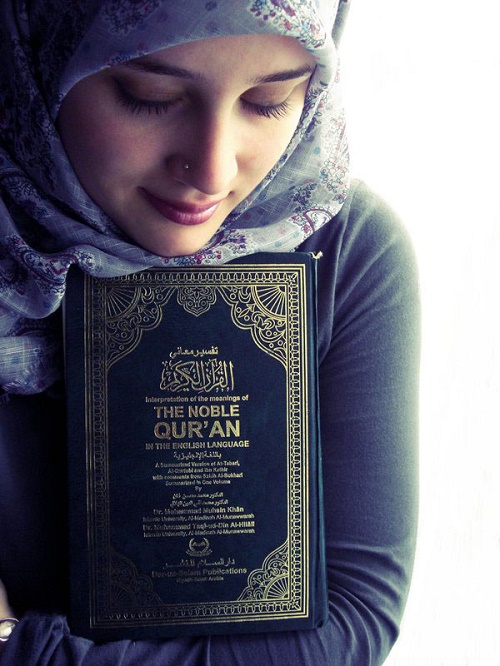 تفسير معاني
القرآن الكريم
Interpretation of the meanings of
THE NOBLE
QUR'AN
IN THE ENGLISH LANGUAGE
باللغة الإنجليزية
A Summarized Version of At-Tabari,
Al-Qurtubi and Ibn Kathir
with comments from Sahih Al-Bukhari
Summarized in One Volume
By
الدكتور محمد محسن خان
الدكتور محمد تقي الدين الهلالي
Dr. Muhammad Muhsin Khan
Islamic University, Al-Madinah Al-Munawwarah
Dr. Muhammad Taqi-ud-Din Al-Hilali
Islamic University, Al-Madinah Al-Munawwarah
دار السلام للنشر
Dar-us-Salam Publications
Riyadh-Saudi Arabia